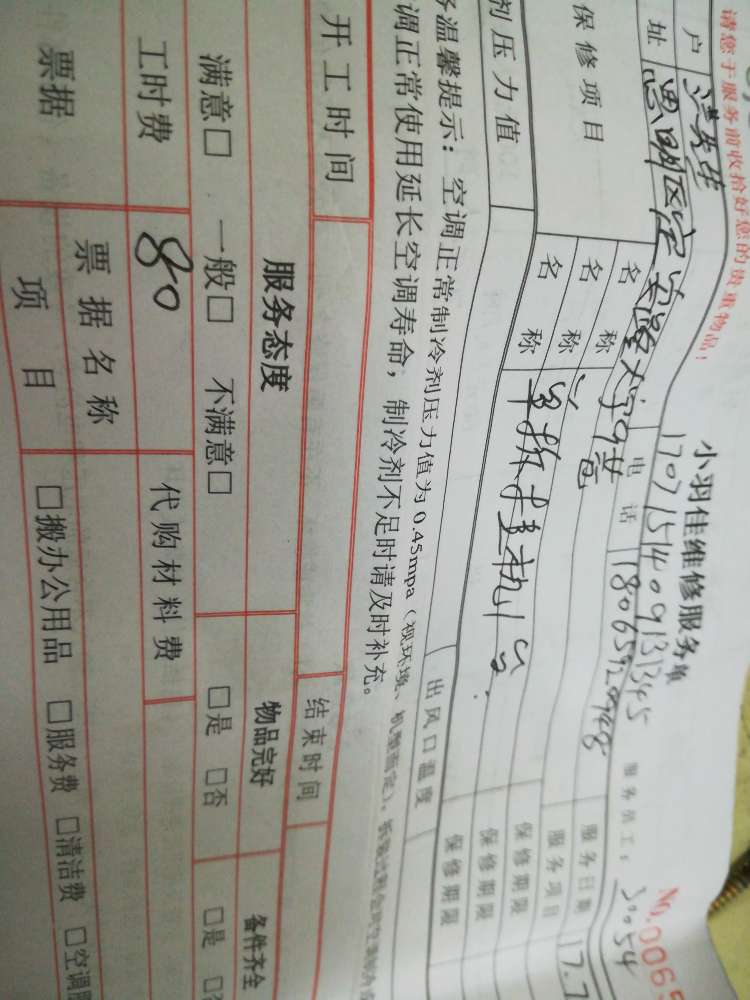 请您于服务前收拾好您的贵重物品!
小羽佳维修服务单
No.0065
1707151409131345
服务员工: 30054
户
洪先生
电话
服务日期
17.7
址
思明区
服务项目
保修项目
名称
保修期限
名称
保修期限
名称
单拆挂机1台.
保修期限
剂压力值
出风口温度
温馨提示: 空调正常制冷剂压力值为0.45mpa (视环境、机型而定),
调正常使用延长空调寿命, 制冷剂不足时请及时补充。
开工时间
结束时间
服务态度
物品完好
备件齐全
满意□ 一般□ 不满意□
□是 □否
□是
工时费
80
代购材料费
票据
票据名称
项目
□搬办公用品 □服务费 □清洁费 □空调